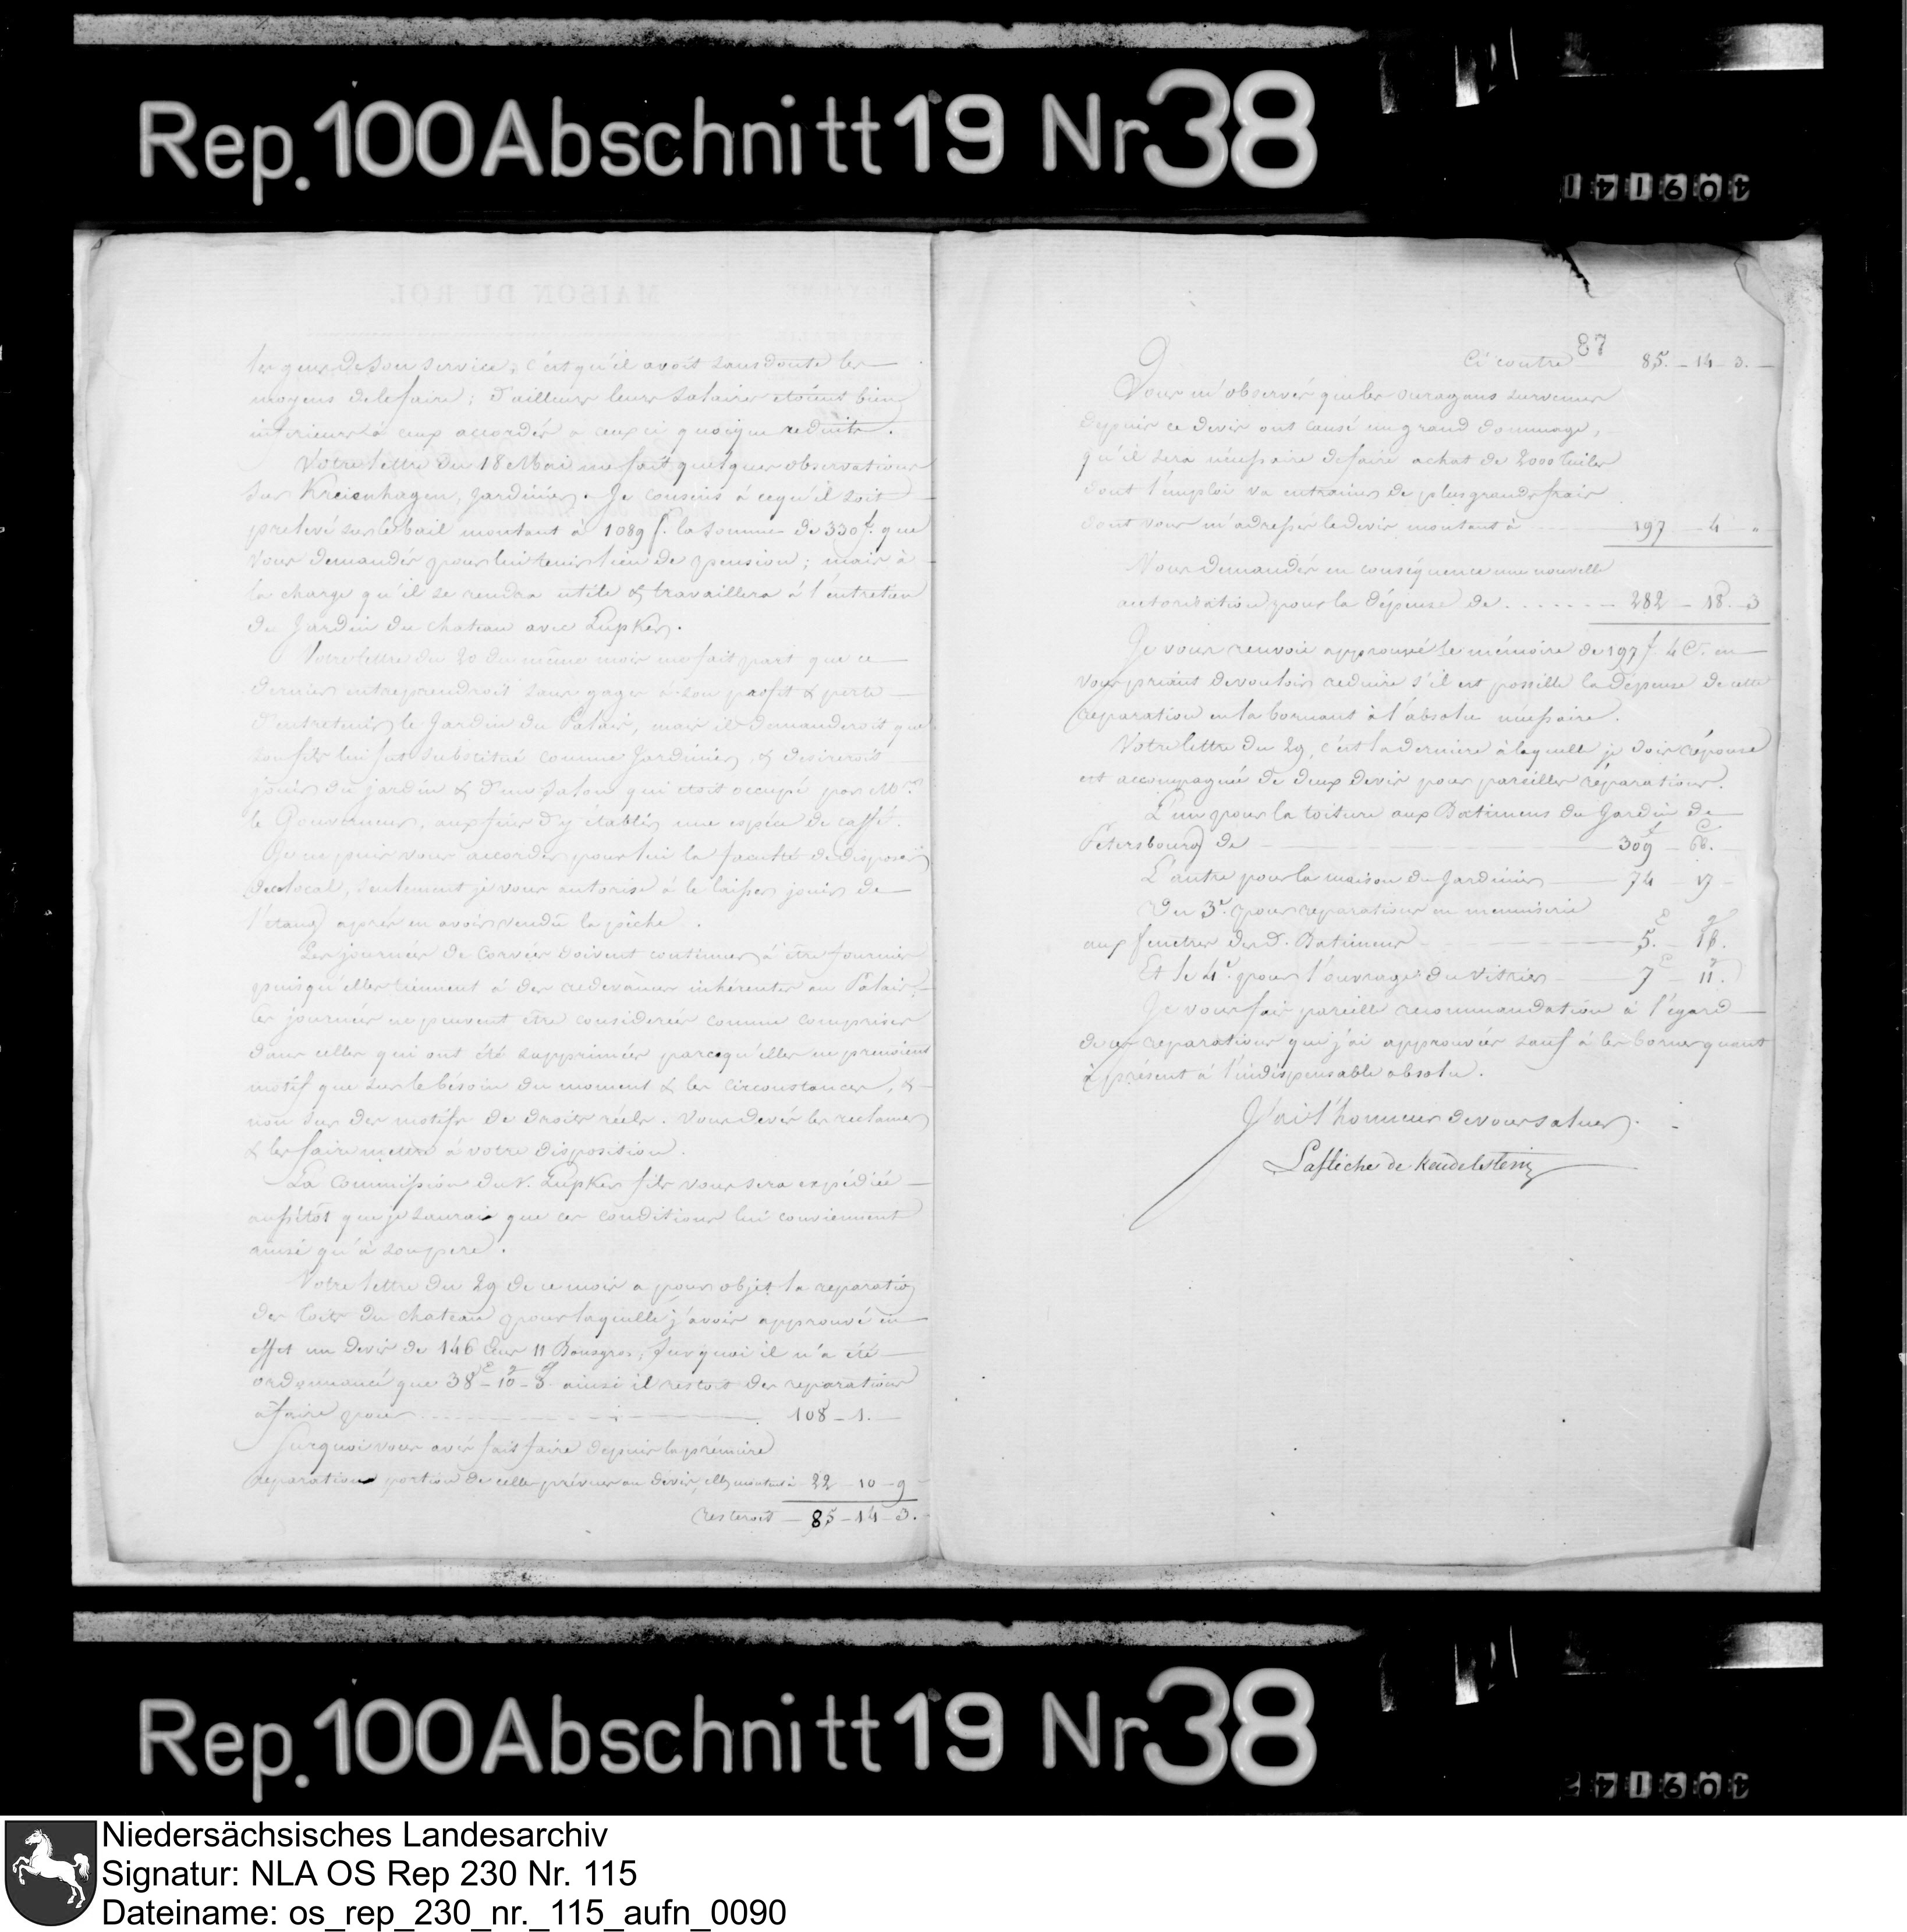 Rep. 100 Abschnitt 19 Nr 38
MAISON DU ROI.
les gens de son service, c'est qu'il avoit sans doute les
moyens de le faire; d'ailleurs leurs salaires etoient bien
inferieurs à ceux accordés a ceux ci quoique reduits.
Votre lettre du 18 Mai me fait quelques observations
sur Kreienhagen, jardinier. Je consens à ce qu'il soit
prelevé sur le bail montant à 1089 f. la somme de 330 f. que
vous demandés pour lui tenir lieu de pension; mais à
la charge qu'il se rendra utile & travaillera à l'entretien
du Jardin du chateau avec Lupker.
Votre lettre du 20 du même mois me fait part que ce
dernier entreprendroit sans gages à son profit & perte
d'entretenir le Jardin du Palais, mais il demanderoit que
son fils lui fut substitué comme Jardinier, & desireroit
jouir du jardin & d'un salon qui etoit occupé par Mr
le Gouverneur, aux fins d'y établir une espèce de caffé.
Je ne puis vous accorder pour lui la faculté de disposer
de ce local, seulement je vous autorise à le laisser jouir de
l'étang après en avoir vendu la pêche.
Les journées de corvées doivent continuer à être fournies
puisqu'elles tiennent à des redevances inhérentes au Palais,
les journées ne peuvent être considerées comme comprises
dans celles qui ont été supprimées parcequ'elles ne prenoient
motif que sur le besoin du moment & les circonstances, &
non sur des motifs de droits réels. Vous devés les reclamer
& les faire mettre à votre disposition.
La Commission du S. Lupker fils vous sera expédiée
aussitôt que je saurai que ces conditions lui conviennent
ainsi qu'à son pere.
Votre lettre du 29 de ce mois a pour objet la reparation
des toits du chateau pour laquelle j'avois approuvé en
effet un devis de 146 Ecus 11 Bonsgros, sur quoi il n'a été
ordonnancé que 38 - 10 - 3 ainsi il restoit des reparations
à faire pour 108 - 1.
Surquoi vous avés fait faire depuis la premiere
reparation portion de celles prévues au devis, elles montent à 22 - 10 - 9
resteroit - 85 - 14 - 3.
87
Ci contre 85. - 14 - 3.
Vous m'observés que les ouragans survenus
depuis ce devis ont causé un grand dommage,
qu'il sera nécessaire de faire achat de 2000 tuiles
dont l'emploi va entrainer de plus grands frais
dont vous m'adressés le devis montant à 197 4 "
Vous demandés en conséquence une nouvelle
autorisation pour la dépense de . . . . . . 282 - 18 - 3
Je vous renvoie approuvé le mémoire de 197 f. 4 C. en
vous priant de vouloir reduire s'il est possible la dépense de cette
reparation en la bornant à l'absolu nécessaire.
Votre lettre du 29, c'est la derniere à laquelle je dois réponse
est accompagnée de deux devis pour pareilles réparations.
L'un pour la toiture aux Batimens du Jardin de
Petersbourg de 309 f - 66. C
L'autre pour la maison du Jardinier 74 - 17
Un 3e. pour reparations en menuiserie
aux fenetres des d. Batimens 5. - 18.
Et le 4e. pour l'ouvrage du vitrier 7 11.
Je vous fais pareille recommandation à l'égard
de ces reparations que j'ai approuvées sauf à les borner quant
à présent à l'indispensable absolu.
J'ai l'honneur de vous saluer.
Laflèche de Keudelstein
Rep. 100 Abschnitt 19 Nr 38
Niedersächsisches Landesarchiv
Signatur: NLA OS Rep 230 Nr. 115
Dateiname: os_rep_230_nr._115_aufn_0090